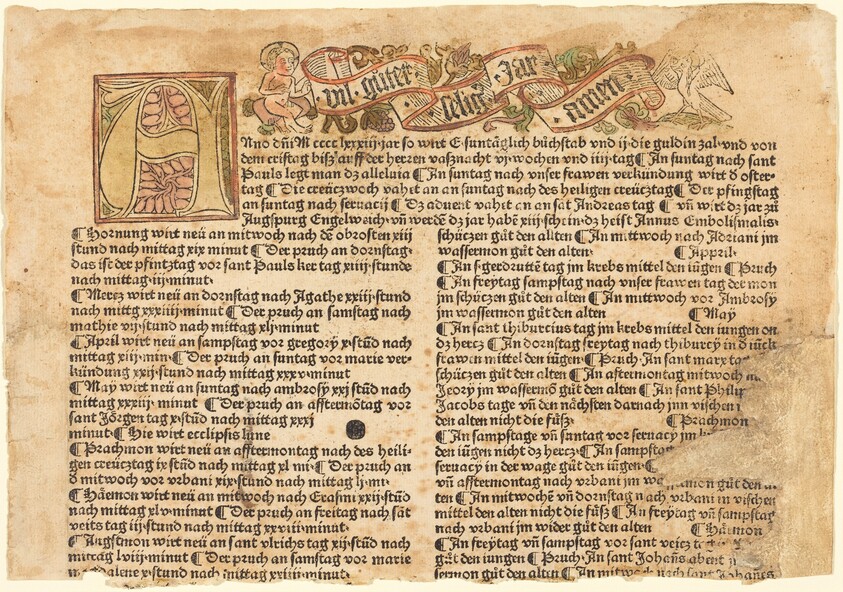 vil güter
selig
Jar
amen
ANno dñi M cccc lxxxiiij jar so wirt E suntäglich büchstab vnd ij die guldin zal vnd von
dem cristag bisz auff der herren vasznacht vj wochen vnd iiij tag ¶ An suntag nach sant
Pauls legt man dz alleluia ¶ An suntag nach vnser frawen verkündung wirt d oster-
tag ¶ Die creüczwoch vahet an an suntag nach des heiligen creücztag ¶ Der pfingstag
an suntag nach seruacij ¶ Dz aduent vahet an an sāt Andreas tag ¶ vñ wirt dz jar zü
Augspurg Engelweich vñ werdē dz jar habē xiij schein dz heist Annus Embolismalis
¶ Hornung wirt neü an mitwoch nach dē obrosten xiij
stund nach mittag xix minut ¶ Der pruch an dornstag
das ist der pfintztag vor sant Pauls ker tag xiij stunde
nach mittag iij minut
¶ Mercz wirt neü an dornstag nach Agathe xxiij stund
nach mittg xxiiij minut ¶ Der pruch an samstag nach
mathie vij stund nach mittag xlj minut
¶ April wirt neü an sampstag vor gregorÿ x stūd nach
mittag xiij min ¶ Der pruch an suntag vor marie ver-
kündung xxij stund nach mittag xxxv minut
¶ May wirt neü an suntag nach ambrosÿ xxj stūd nach
mittag xxxiij minut ¶ Der pruch an afftermōtag vor
sant Jörgen tag x stūd nach mittag xxxj
minut ¶ Hie wirt ecclipsis lune
¶ Prachmon wirt neü an afftermontag nach des heili-
gen creücztag ix stūd nach mittag xl mi ¶ Der pruch an
d mitwoch vor vrbani xix stund nach mittag lj mi
¶ Häemon wirt neü an mitwoch nach Erasmi xxij stūd
nach mittag xlv minut ¶ Der pruch an freitag nach sāt
veits tag iij stund nach mittag xxviii minut
¶ Augstmon wirt neü an sant vlrichs tag xij stūd nach
mittag lviij minut ¶ Der pruch an samstag vor marie
magdalene x stund nach mittag xxiiij minut
schüczen güt den alten ¶ An mittwoch nach Adriani jm
wassermon güt den alten ¶ Appril
¶ An s gerdruttē tag jm krebs mittel den iügen ¶ Pruch
¶ An freytag sampstag nach vnser frawen tag der mon
jm schüczen güt den alten ¶ An mittwoch vor Ambrosÿ
jm wassermon güt den alten ¶ May
¶ An sant thiburcius tag jm krebs mittel den iungen on
dz hercz ¶ An dornstag freytag nach thiburcÿ in d iück
frawen mittel den iügen ¶ Pruch An sant marx
schüczen güt den alten ¶ An aftermontag mitwoch
Jeorÿ jm wassermō güt den alten ¶ An sant Philip
Jacobs tage vñ den nächsten darnach jnn vischen
den alten nicht die füsz ¶ Prachmon
¶ An sampstage vñ suntag vor seruacÿ jm
den iügen nicht dz hercz ¶ An sampstag
seruacÿ in der wage güt den iügen ¶
vñ afftermontag nach vrbani jm güt den
ten ¶ An mitwochē vñ dornstag nach vrbani in vischen
mittel den alten nicht die füsz ¶ An freytag vñ sampstag
nach vrbani jm wider güt den alten ¶ Häemon
¶ An freÿtag vñ sampstag vor sant veicz
güt den iungen ¶ Pruch An sant Johañs abent
sermon güt den alten ¶ An mitwoch nach sant Johañes